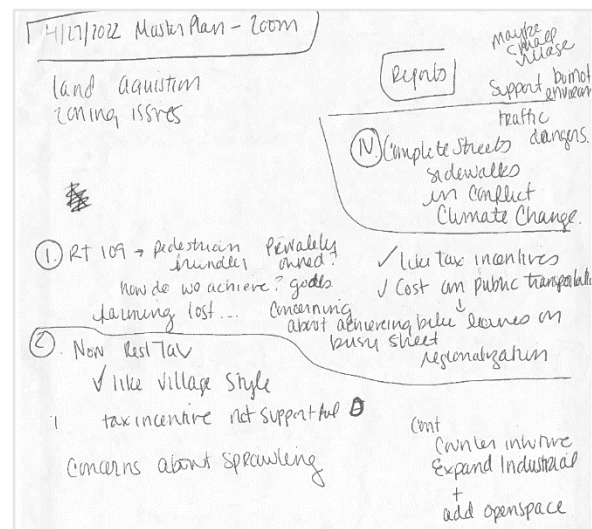 4/27/2022 Master Plan - Zoom
land aquistion
zoning issues
Reports
Maybe
small
village
Support but not
environ
traffic
dangers.
IV. Complete Streets
sidewalks
in conflict
Climate Change.
1. RT 109 → pedestrian friendly
Privately owned?
how do we achieve? goals
farming lost...
Concerning
about achieving bike leaves on
busy street
✓ like tax incentives
✓ Cost on public transportatio
↓
regionalization
2. Non Resl Tax
✓ like Village Style
tax incentive not supportful
Concerns about sprawling
Cont
Counter intuitive
Expand Industrial
+
add openspace